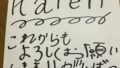 Karen
これからも
よろしくお願い